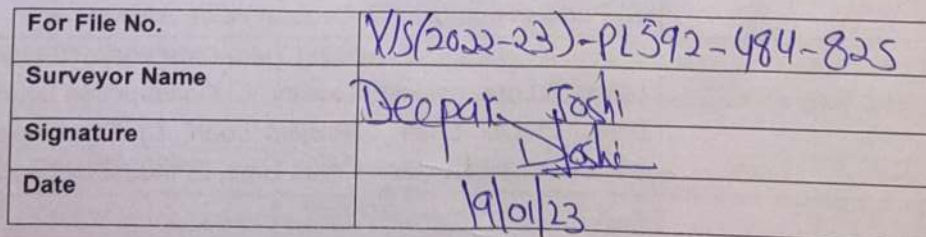 For File No. VIS(2022-23)-PL592-484-825
Surveyor Name Deepak Joshi
Signature DJoshi
Date 19/01/23